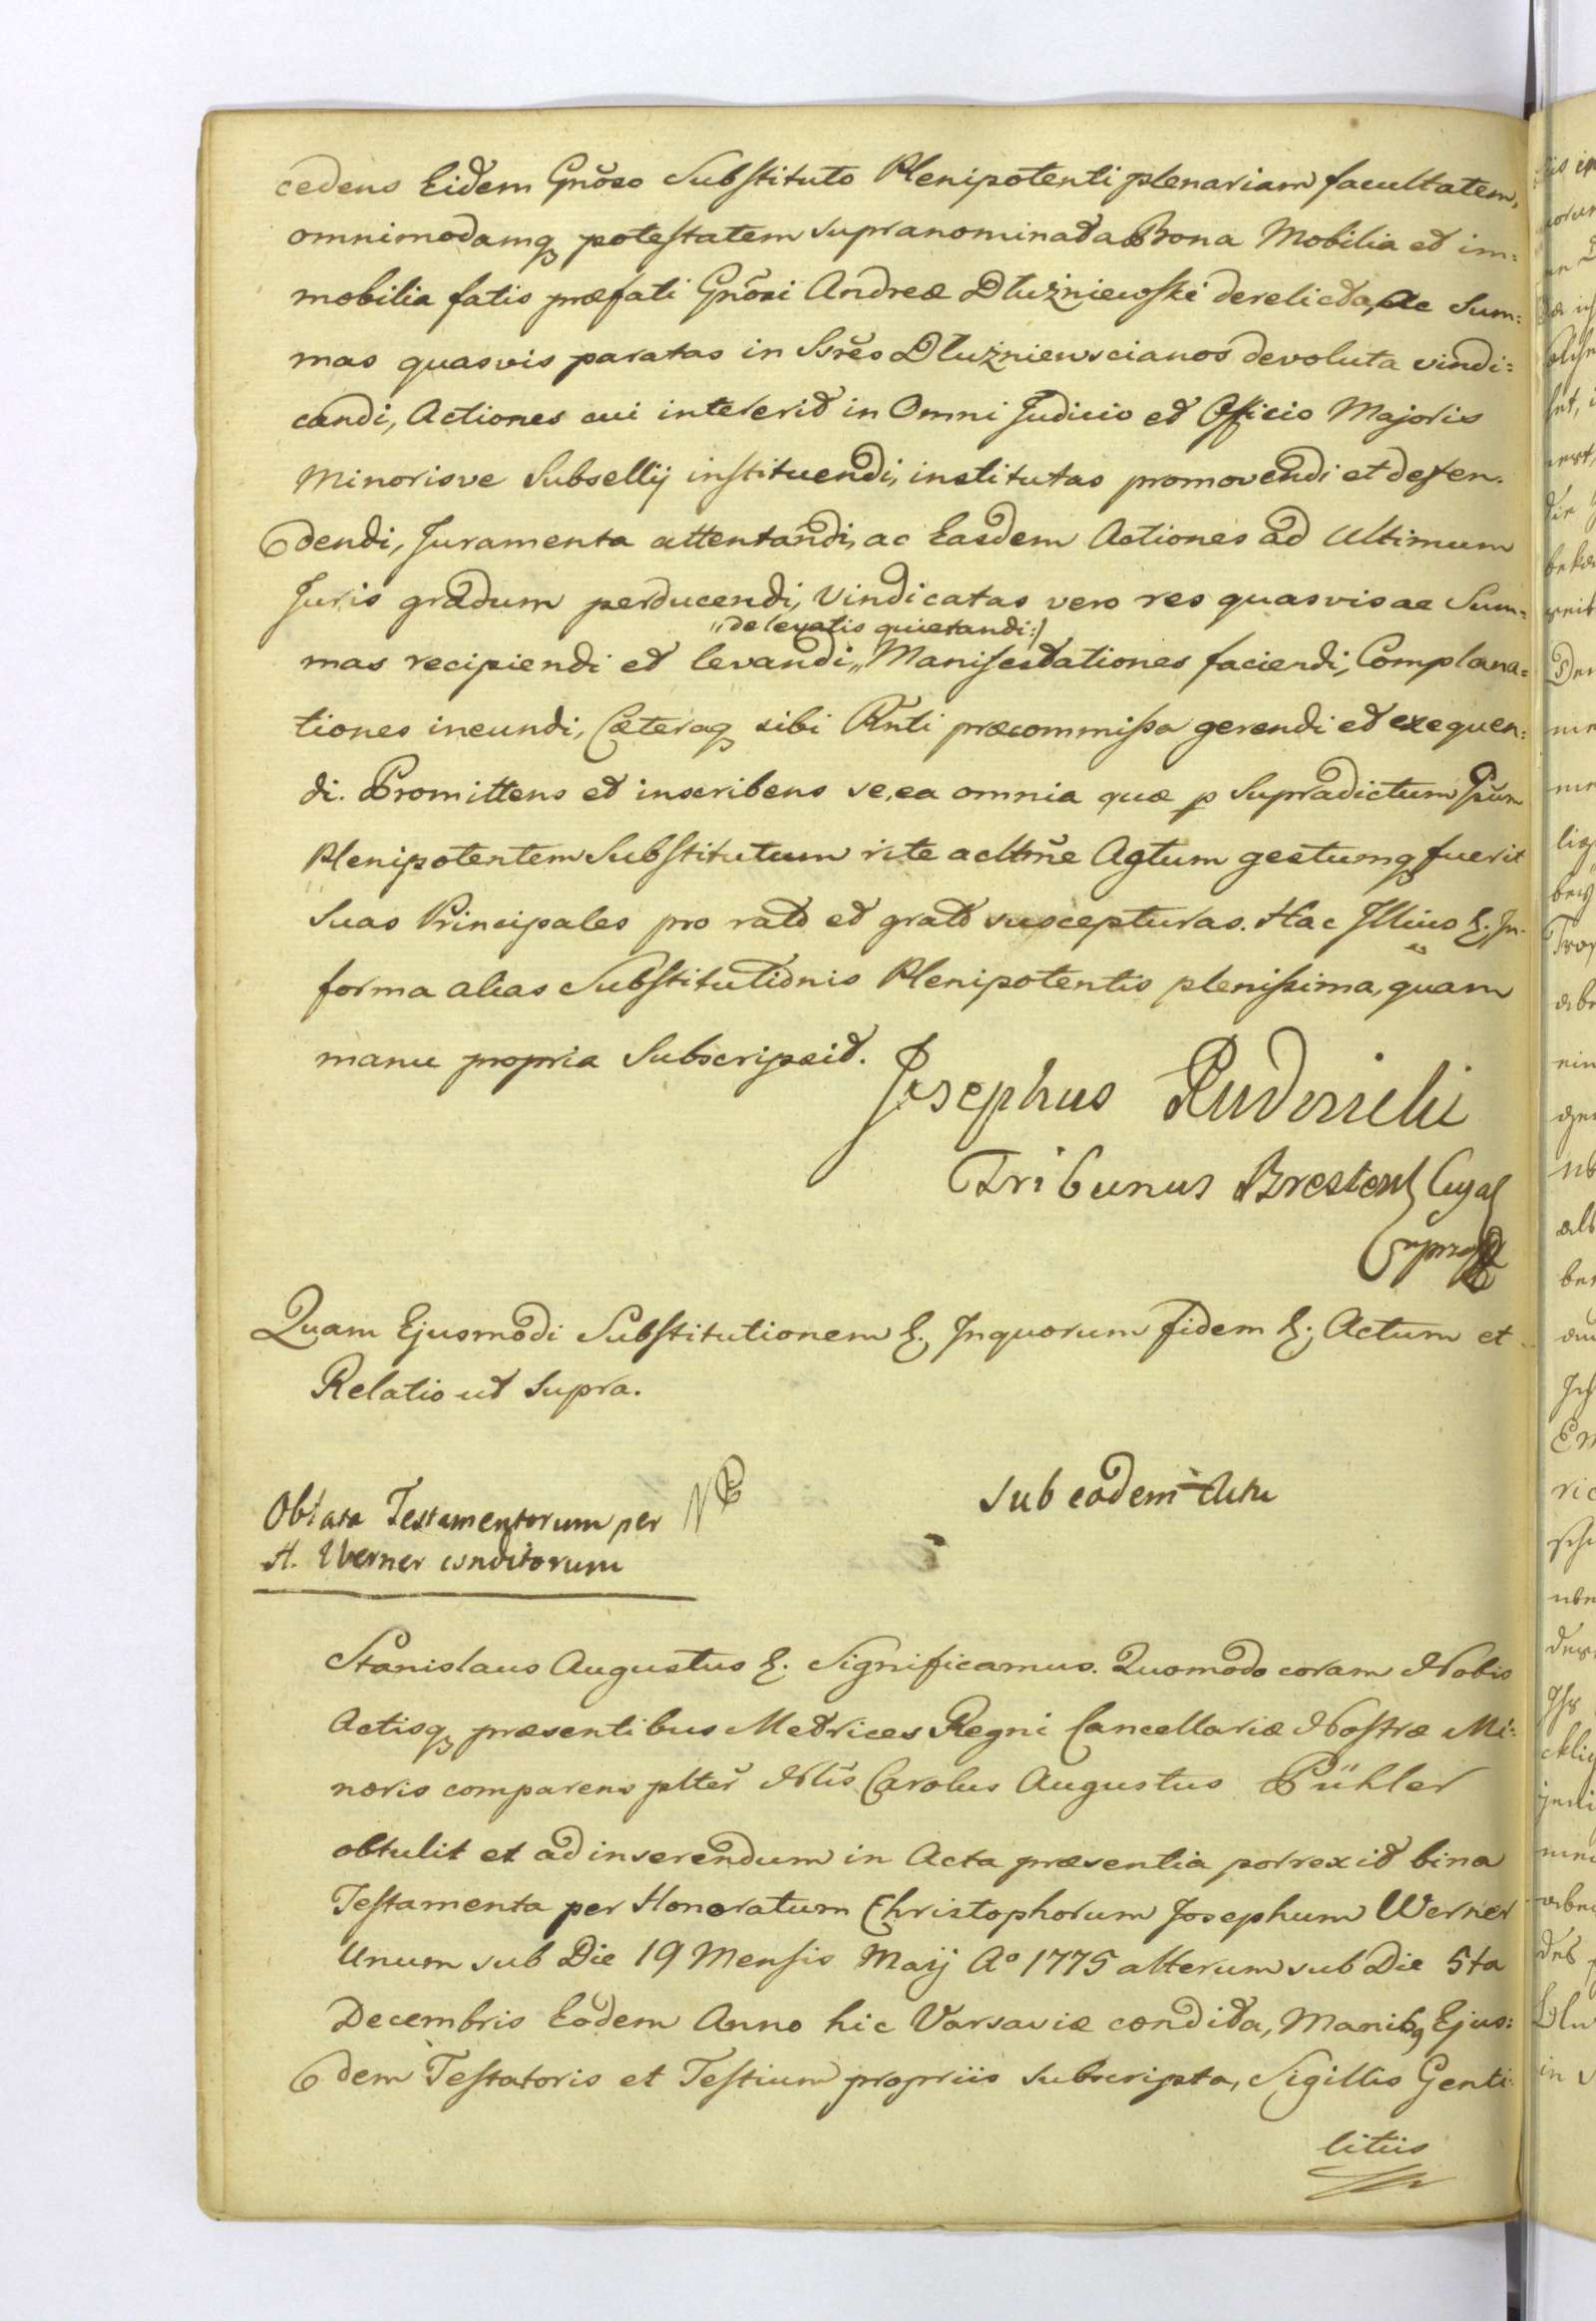 cedens Eidem Gnõso Substituto Plenipotenti plenariam facultatem,
omnimodamq potestatem supranominata Bona Mobilia et im:
mobilia fatis præfati Gnõsi Andreæ Dłużniewski derelicta, Ac Sum:
mas quasvis paratas in Ssrẽs Dłużniewscianos devoluta vindi:
candi, Actiones cui intererit in Omni Judicio et Officio Majoris
Minorisve Subsellij instituendi, institutas promovendi et defen.
dendi, Juramenta attentandi, ac Easdem Actiones ad Ultimum
Juris gradum perducendi, Vindicatas vero res quasvis ac Sum=
„de levatis quietandi:/
mas recipiendi et levandi„ Manifestationes faciendi, Complana=
tiones ineundi, Cæteraq sibi Rñti præcommissa gerendi et exequen:
di. Promittens et inscribens se, ea omnia quæ p Supradictum
Plenipotentem Substitutum rite acltm̃e Actum gestumq fuerit
Suas Principales pro rato et grato suscepturas. Hac Illius &. In.
forma alias Substitutionis Plenipotentis plenissima, quam
manu propria Subscripsit.
Josephus Rudnicki
Tribunus Brestens Cujas
Quam Ejusmodi Substitutionem &. Inquorum fidem &. Actum et
Relatio ut Supra.
Oblata Testamentorum per NB
H. Werner conditorum
Sub eodem Actu
Stanislaus Augustus &. Significamus. Quomodo coram Nobis
Actisq præsentibus Metrices Regni Cancellariæ Nostræ Mi:
noris comparens plter̃ Nlĩs Carolus Augustus Pühler
obtulit et ad inserendum in Acta præsentia porrexit bina
Testamenta per Honoratum Christophorum Josephum Werner
Unum sub Die 19 Mensis Maij A° 1775 alterum sub Die 5ta
Decembris Eodem Anno hic Varsaviæ condita, Manibq Ejus:
dem Testatoris et Testium propriis subscripta, Sigillis Genti:
litiis